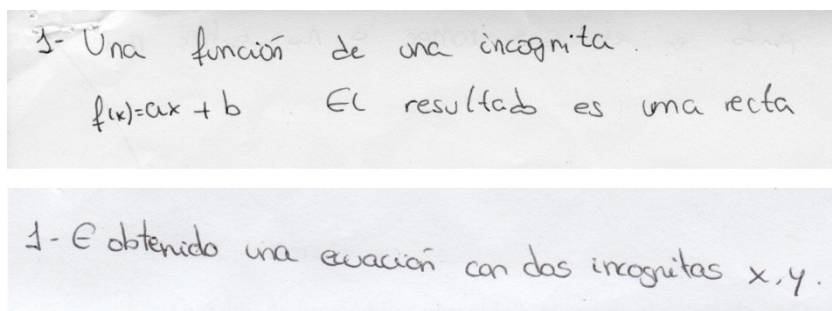 1- Una función de una incognita.
f(x)=ax + b El resultado es una recta
1- E obtenido una ecuación con dos incognitas x, y.